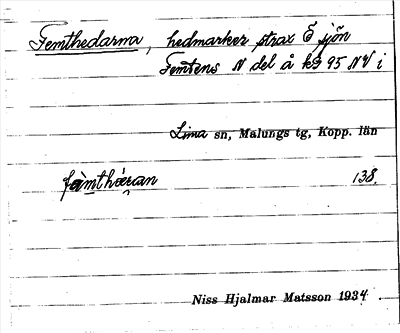 Femthedarna, hedmarker strax Ö sjön
Femtens N del å kb 95 NV i
Lima sn, Malungs tg, Kopp. län
fæ̀mthéran 138.
Niss Hjalmar Matsson 1934.